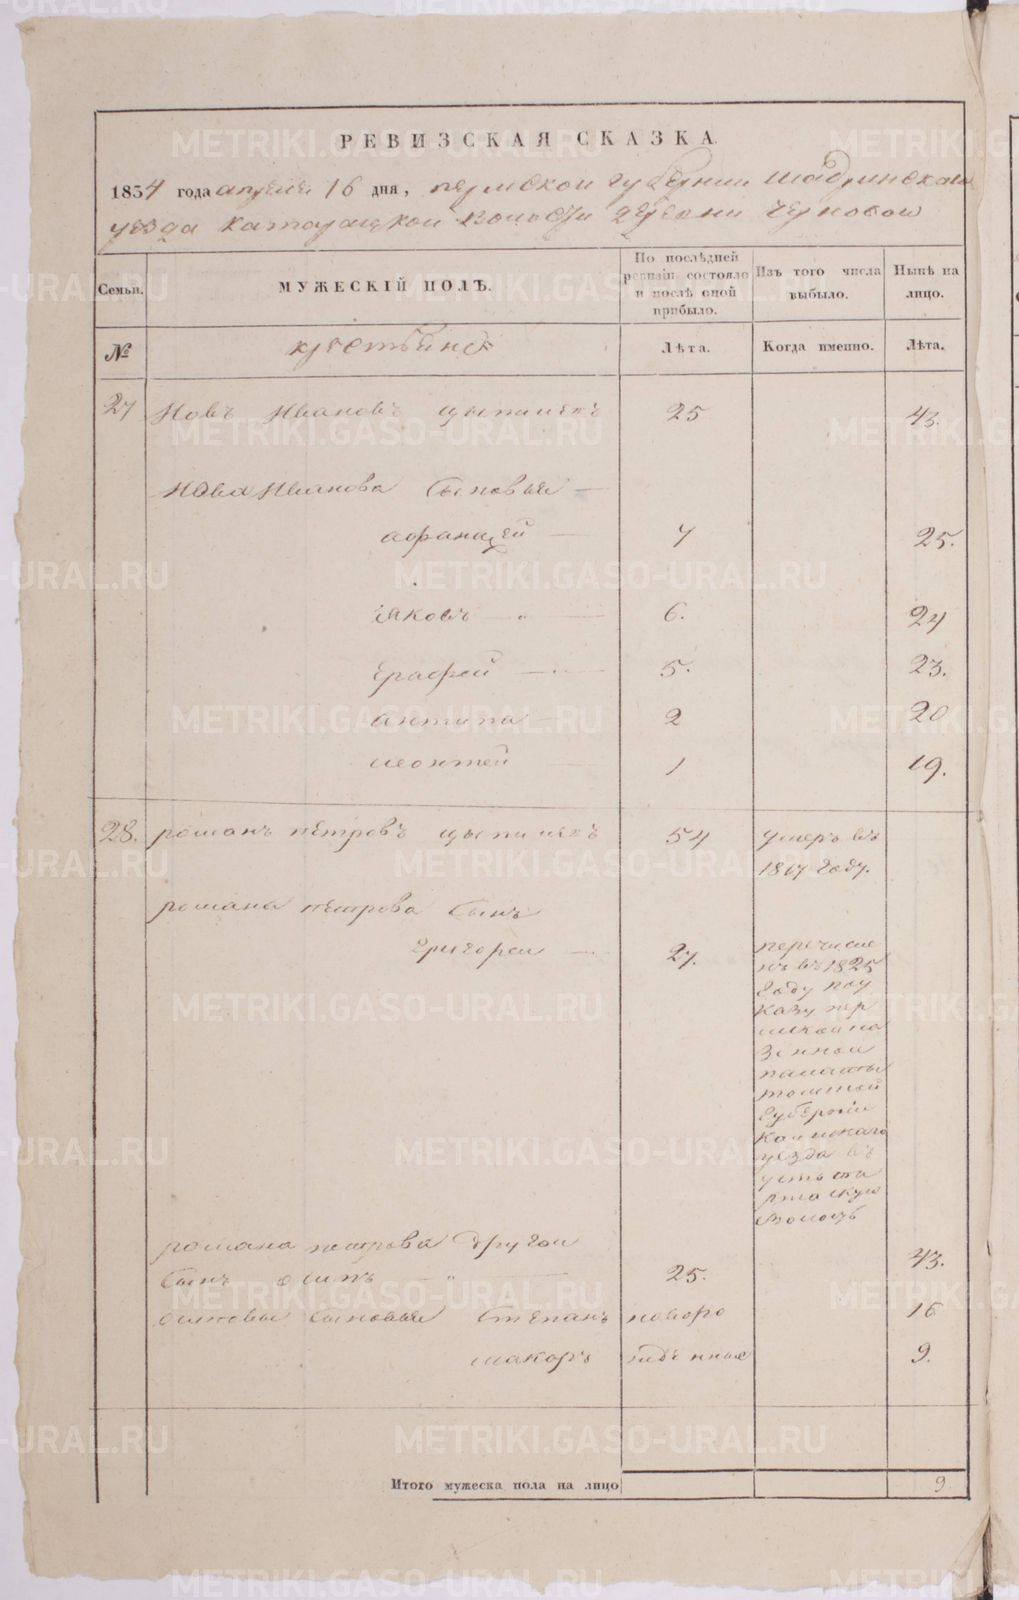 РЕВИЗСКАЯ СКАЗКА.
1834 года апреля 16 дня, пермской губернии шадринскаго
уезда катайской волости деревни черновой
Семьи.
МУЖЕСКІЙ ПОЛЪ.
По послѣдней ревизіи состояло и послѣ оной прибыло.
Изъ того числа выбыло.
Нынѣ на лицо.
№
Лѣта.
Когда именно.
Лѣта.
27 Иовъ Ивановъ 25 43.
Иова Иванова сыновья
афанасей 7 25.
Яковъ 6. 24
Ерафей 5. 23.
антипа 2 20
леонтей 1 19.
28. романъ петровъ 54 умеръ въ
году.
романа петрова сынъ
григореи 27. перечисле
нъ въ 1825
году по у
казу пер
мской ка
зенной
палаты
томской
губерніи
каинскаго
уезда въ
усть та
ртаскую
волость
романа петрова другои
сынъ осипъ 25. 43.
осиповы сыновья Степанъ новоро 16
макаръ жденные 9.
Итого мужеска пола на лицо 9
METRIKI.GASO-URAL.RU